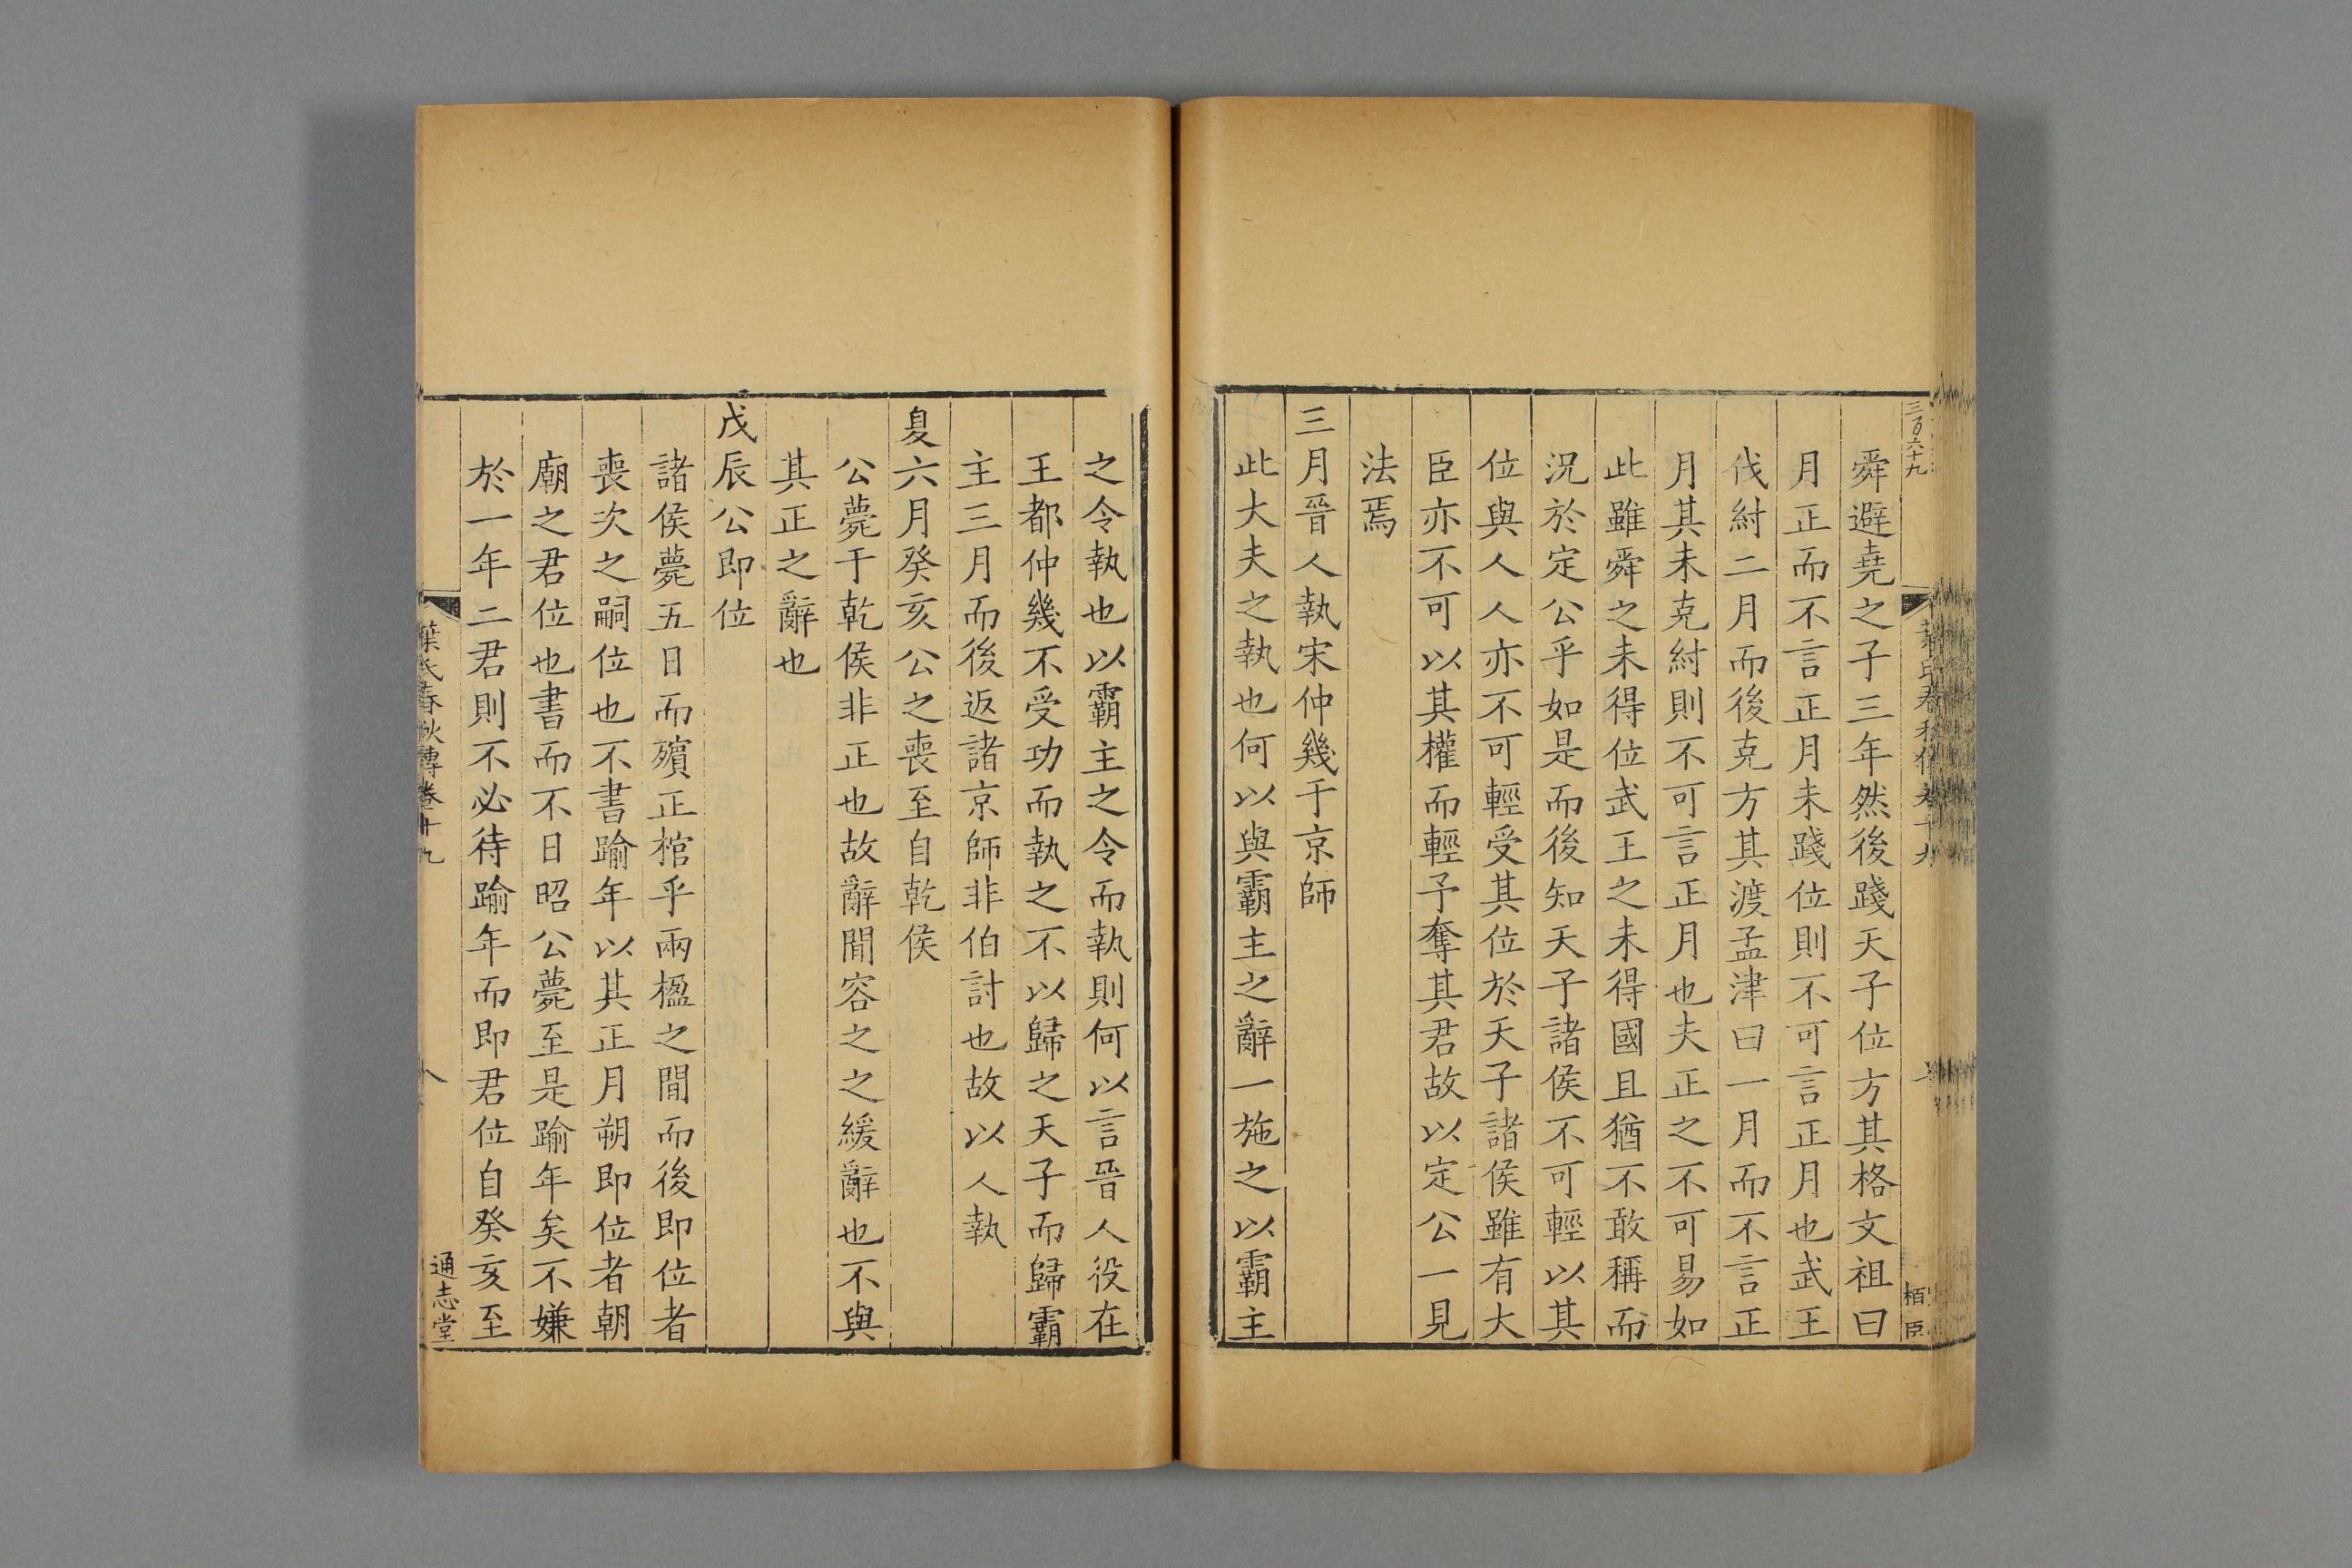 三百六十九
舜避堯之子三年然後踐天子位方其格文祖曰
月正而不言正月未踐位則不可言正月也武王
伐紂二月而後克方其渡孟津曰一月而不言正
月其未克紂則不可言正月也夫正之不可易如
此雖舜之未得位武王之未得國且猶不敢稱而
況於定公乎如是而後知天子諸侯不可輕以其
位與人人亦不可輕受其位於天子諸侯雖有大
臣亦不可以其權而輕予奪其君故以定公一見
法焉
三月晉人執宋仲幾于京師
此大夫之執也何以與霸主之辭一施之以霸主
之令執也以霸主之令而執則何以言晉人役在
王都仲幾不受功而執之不以歸之天子而歸霸
主三月而後返諸京師非伯討也故以人執
夏六月癸亥公之喪至自乾侯
公薨于乾侯非正也故辭閒容之之緩辭也不與
其正之辭也
戊辰公即位
諸侯薨五日而殯正棺乎兩楹之閒而後即位者
喪次之嗣位也不書踰年以其正月朔即位者朝
廟之君位也書而不日昭公薨至是踰年矣不嫌
於一年二君則不必待踰年而即君位自癸亥至
葉氏春秋傳卷十九
八
通志堂